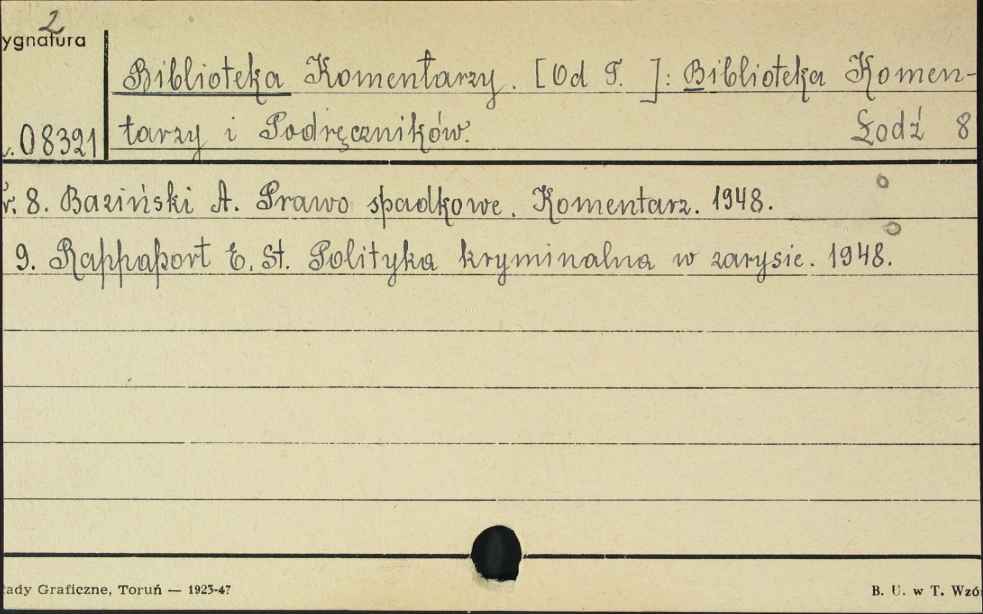 2
ygnatura
Biblioteka Komentarzy. [Od T. ]: Biblioteka Komen-
08321 tarzy i Podręczników. Łodź 8
r. 8. Baziński A. Prawo spadkowe. Komentarz. 1948.
9. Rappaport E. St. Polityka kryminalna w zarysie. 1948.
łady Graficzne, Toruń — 1925-47 B. U. w T. Wzó